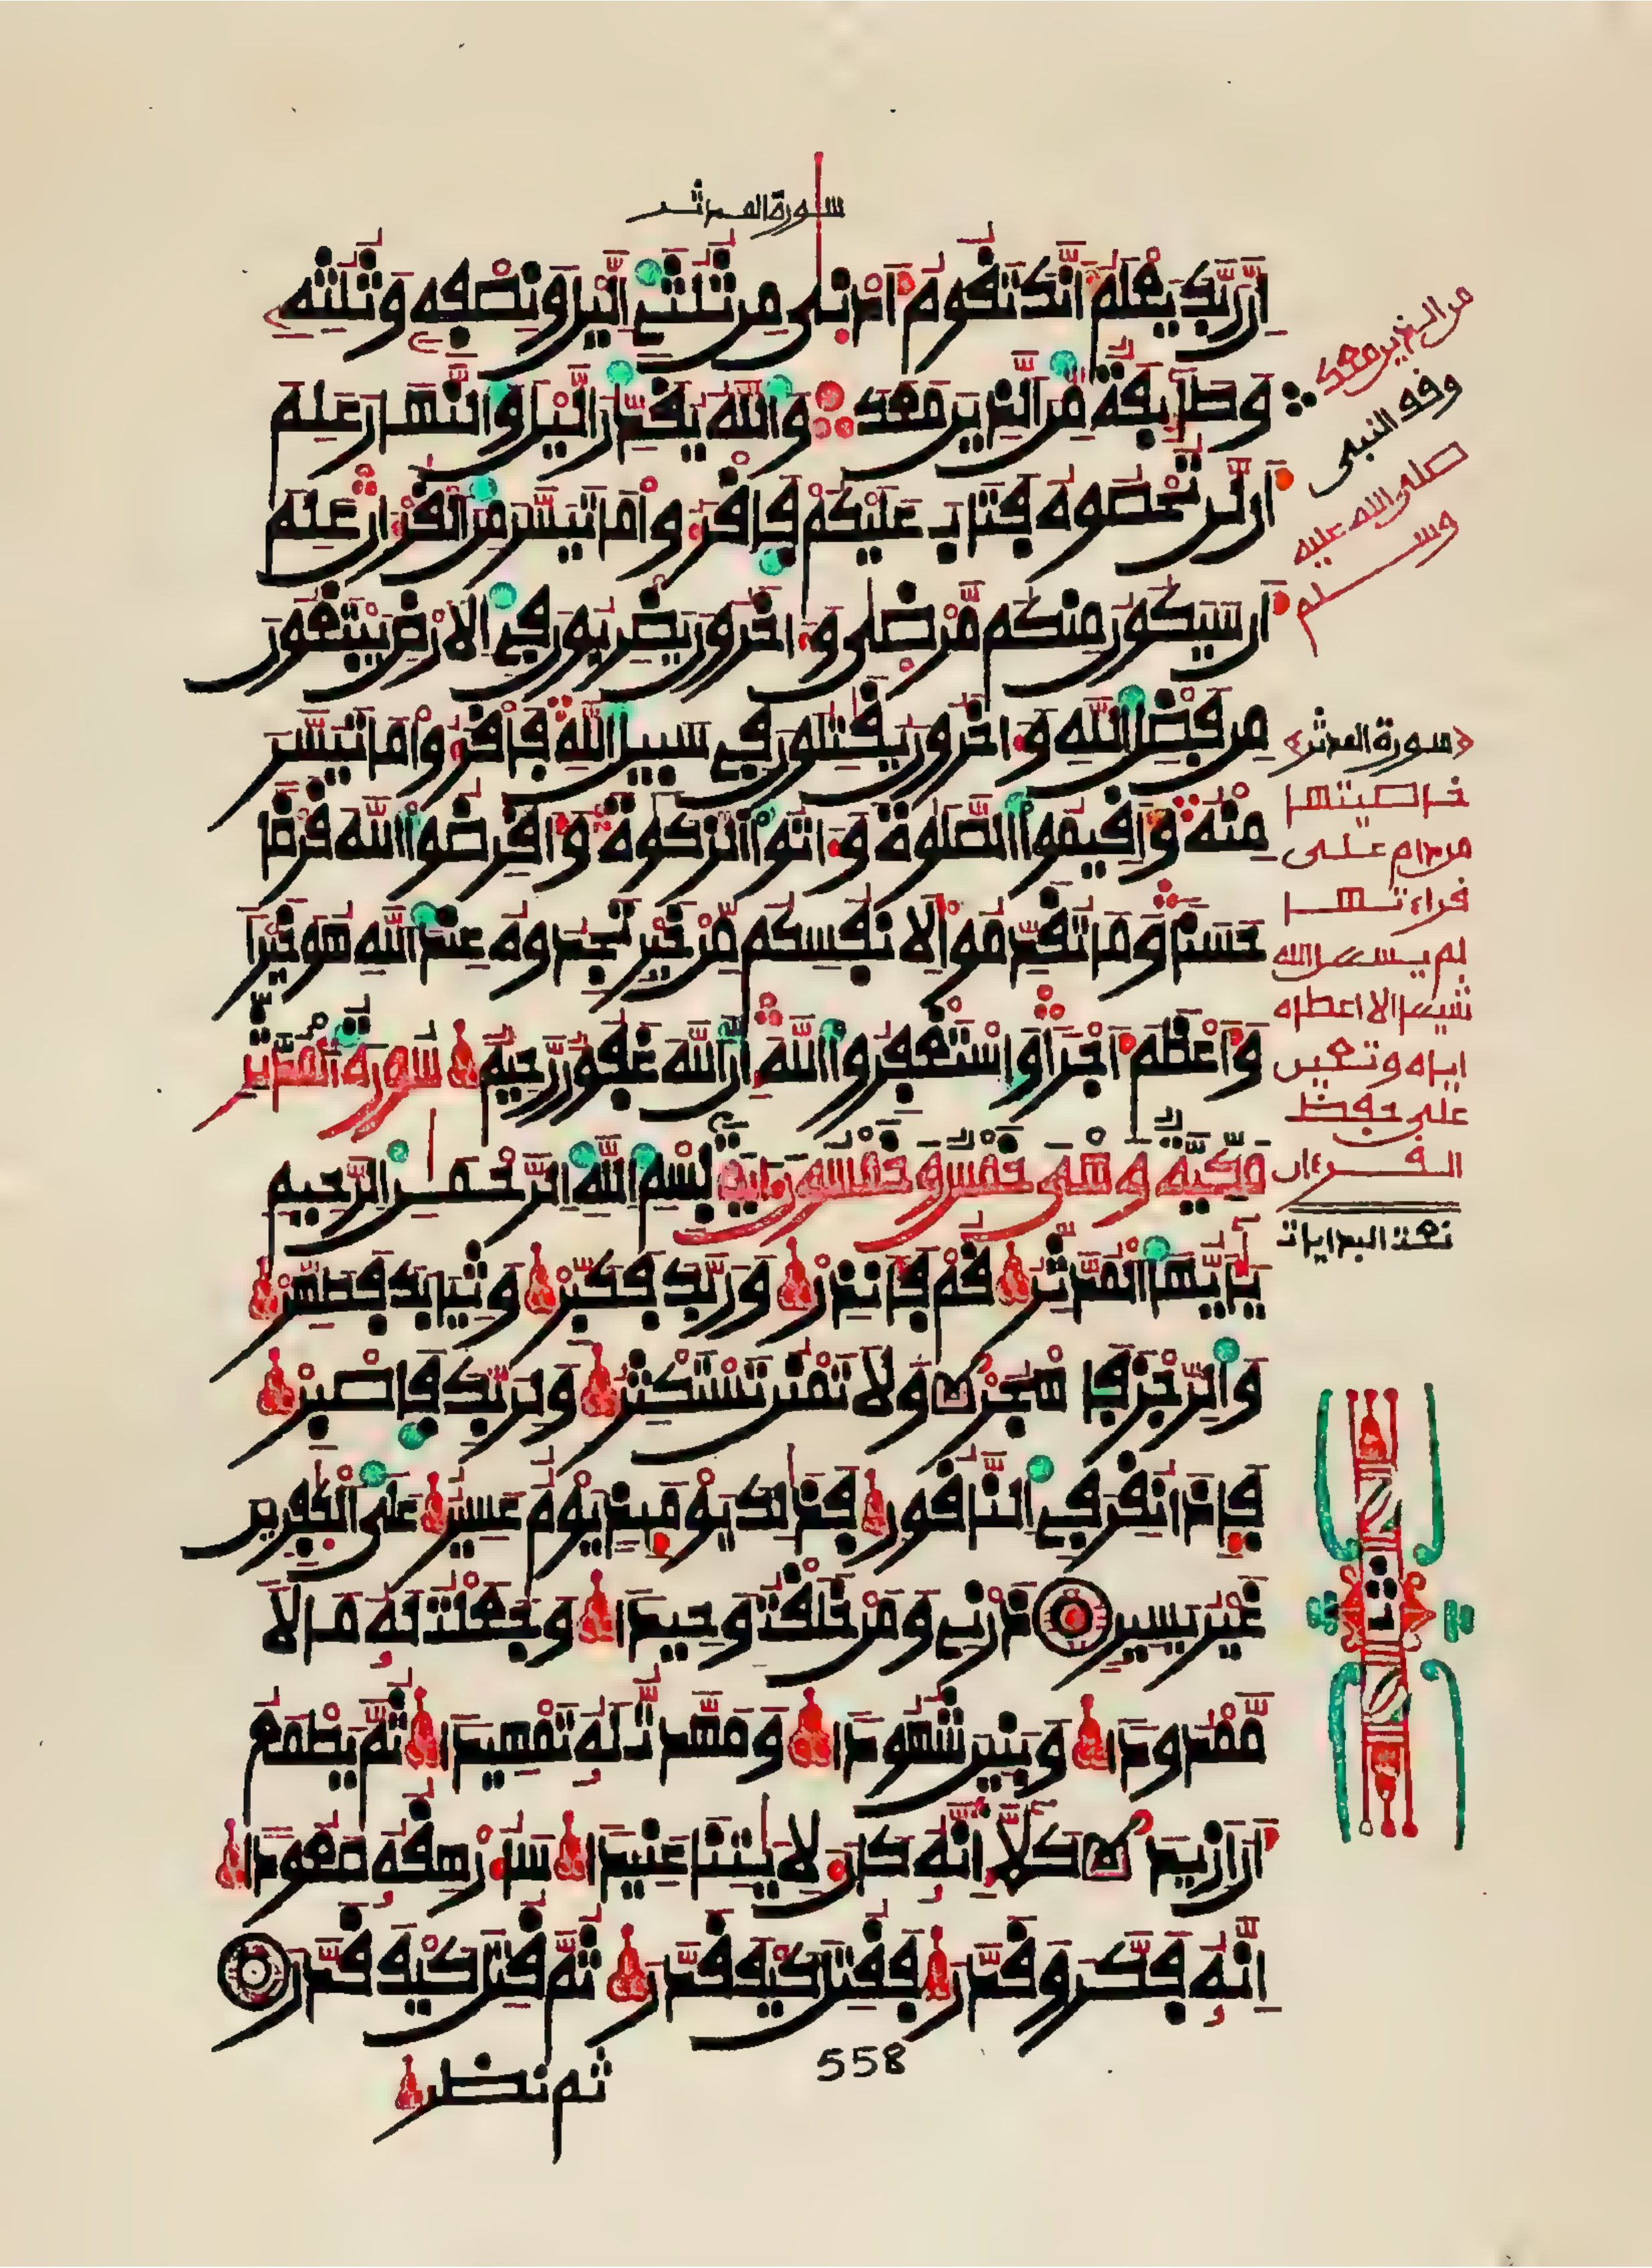 سورة المدثر
إن ربك يعلم أنك تقوم أدنى من ثلثي اليل ونصفه وثلثه
وطائفة من الذين معك والله يقدر اليل والنهار علم
أن لن تحصوه فتاب عليكم فاقرءوا ما تيسر من القرءان علم
أن سيكون منكم مرضى وءاخرون يضربون في الارض يبتغون
من فضل الله وءاخرون يقتلون في سبيل الله فاقرءوا ما تيسر
منه وأقيموا الصلوة وءاتوا الزكوة وأقرضوا الله قرضا
حسنا وما تقدموا لانفسكم من خير تجدوه عند الله هو خيرا
وأعظم أجرا واستغفروا الله إن الله غفور رحيم سورة المدثر
مكية وهي خمس وخمسون ءاية بسم الله الرحمن الرحيم
يأيها المدثر قم فأنذر وربك فكبر وثيابك فطهر
والرجز فاهجر ولا تمنن تستكثر ولربك فاصبر
فإذا نقر في الناقور فذلك يومئذ يوم عسير على الكفرين
غير يسير ذرني ومن خلقت وحيدا وجعلت له مالا
ممدودا وبنين شهودا ومهدت له تمهيدا ثم يطمع
أن أزيد كلا إنه كان لايتنا عنيدا سأرهقه صعودا
إنه فكر وقدر فقتل كيف قدر ثم قتل كيف قدر
ثم نظر
558
من الذين معك
وقف النبي
صلى الله عليه
وسلم
سورة المدثر
خاصيتها
من دام على
قراءتها
لم يسئل الله
شيئا الا اعطاه
اياه وتعين
على حفظ
القرءان
تمت البدايات